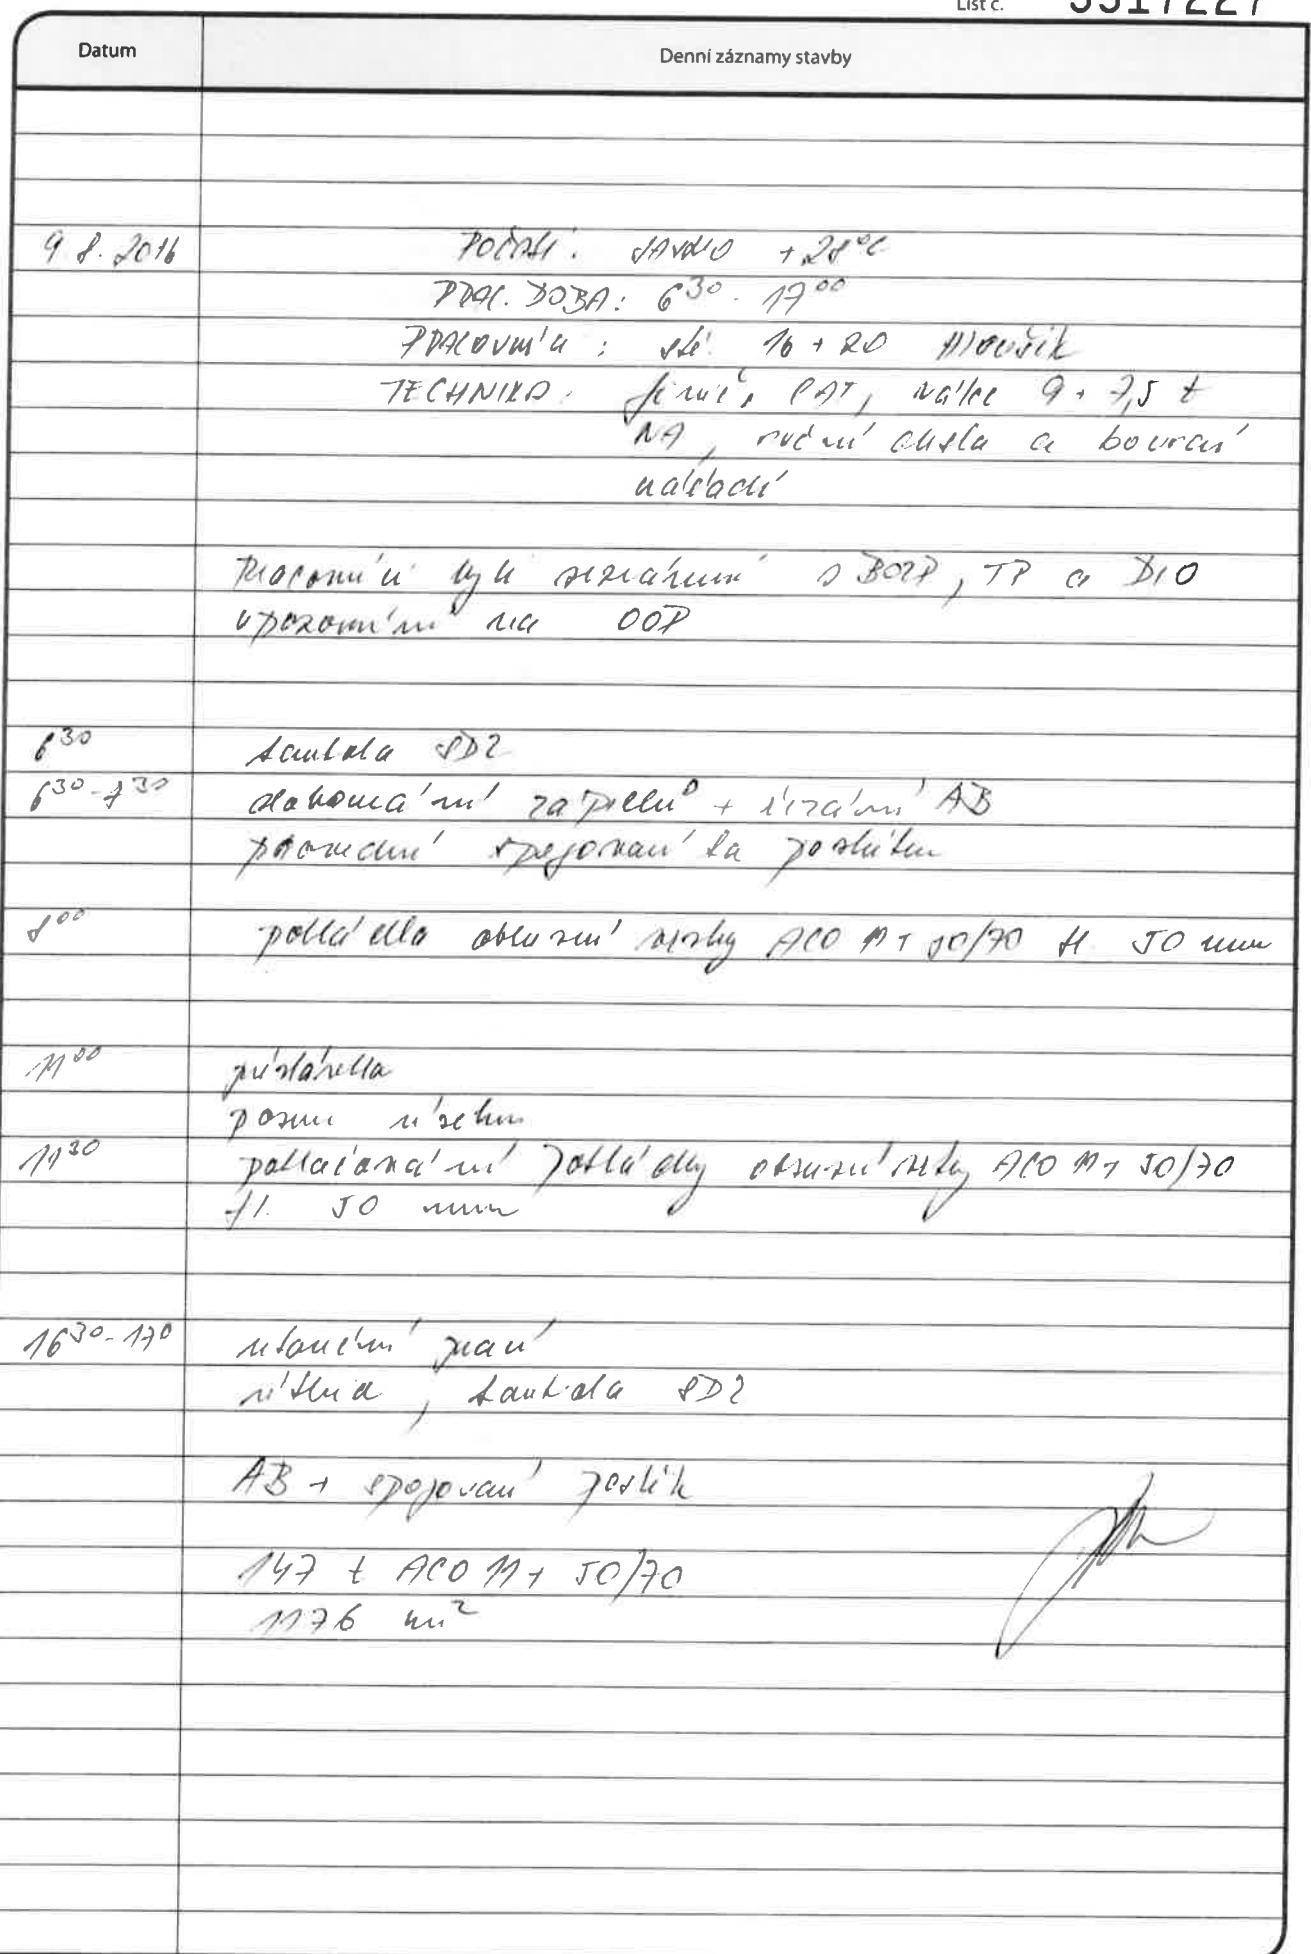 List č. 5517227
Datum
Denní záznamy stavby
9.8.2016 POČASÍ: +28°C
PRAC. DOBA: 6³⁰ - 17⁰⁰
PRACOVNÍCI: 16 + 20
TECHNIKA: finiš. CAT, válce 9 + 7,5 t
NA, ruční a bourací
nářadí
Pracovníci byli seznámeni s BOZP, TP a DIO
upozorněni na OOP
6³⁰ kontrola SDZ
6³⁰-7³⁰ AB
provedení spojovací postřiku
8⁰⁰ pokládka obrusné vrstvy ACO 11+ 50/70 tl. 50 mm
11⁰⁰ přestávka
posun
11³⁰ pokračování pokládky obrusné vrstvy ACO 11+ 50/70
tl. 50 mm
16³⁰-17⁰ ukončení prací
úklid, kontrola SDZ
AB + spojovací postřik
147 t ACO 11+ 50/70
1176 m²